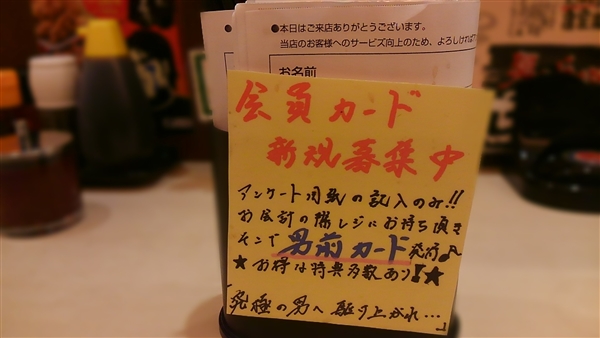 ●本日はご来店ありがとうございます。
当店のお客様へのサービス向上のため、よろしければ
お名前
会員カード
新規募集中
アンケート用紙の記入のみ!!
お会計の際レジにお持ち頂き
そこで男前カード発行♪
★お得な特典多数あり!★
「究極の男へ駆け上がれ…」